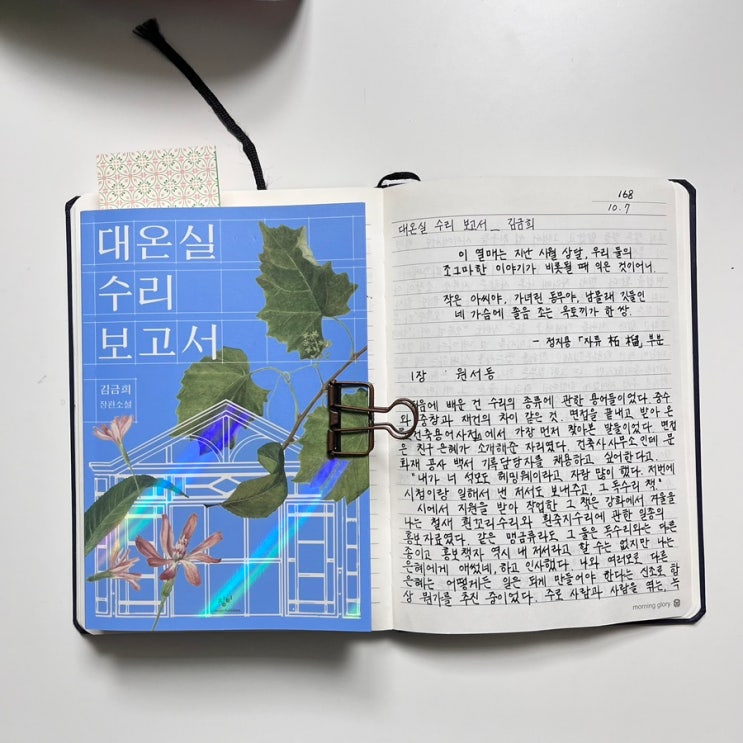 대온실
수리
보고서
김금희
장편소설
168
10.7
대온실 수리 보고서 _ 김금희
이 열매는 지난 시월 상달, 우리 둘의
조그마한 이야기가 비롯될 때 익은 것이어니.
작은 아씨야, 가녀린 동무야, 남몰래 깃들인
네 가슴에 졸음 조는 옥토끼가 한 쌍.
- 정지용 「자류 柘榴」 부분
1장 원서동
처음에 배운 건 수리의 종류에 관한 용어들이었다. 중수
와 중창과 재건의 차이 같은 것. 면접을 끝내고 받아 온
건축용어사전』에서 가장 먼저 찾아본 말들이었다. 면접
은 친구 은혜가 소개해준 자리였다. 건축사사무소인데 문
화재 공사 백서 기록담당자를 채용하고 싶어한다고.
"내가 너 석모도 헤밍웨이라고 자랑 많이 했다. 저번에
시청이랑 일해서 낸 저서도 보내주고, 그 독수리 책."
시에서 지원을 받아 작업한 그 책은 강화에서 겨울을
나는 철새 흰꼬리수리와 흰죽지수리에 관한 일종의
홍보자료였다. 같은 맹금류라도 그 둘은 독수리와는 다른
종이고 홍보책자 역시 내 저서라고 할 수는 없지만 나는
은혜에게 애썼네, 하고 인사했다. 나와 여러모로 다른
은혜는 어떻게든 일은 되게 만들어야 한다는 신조로 항
상 뭔가를 추진 중이었다. 주로 사람과 사람을 엮는, 녹
morning glory